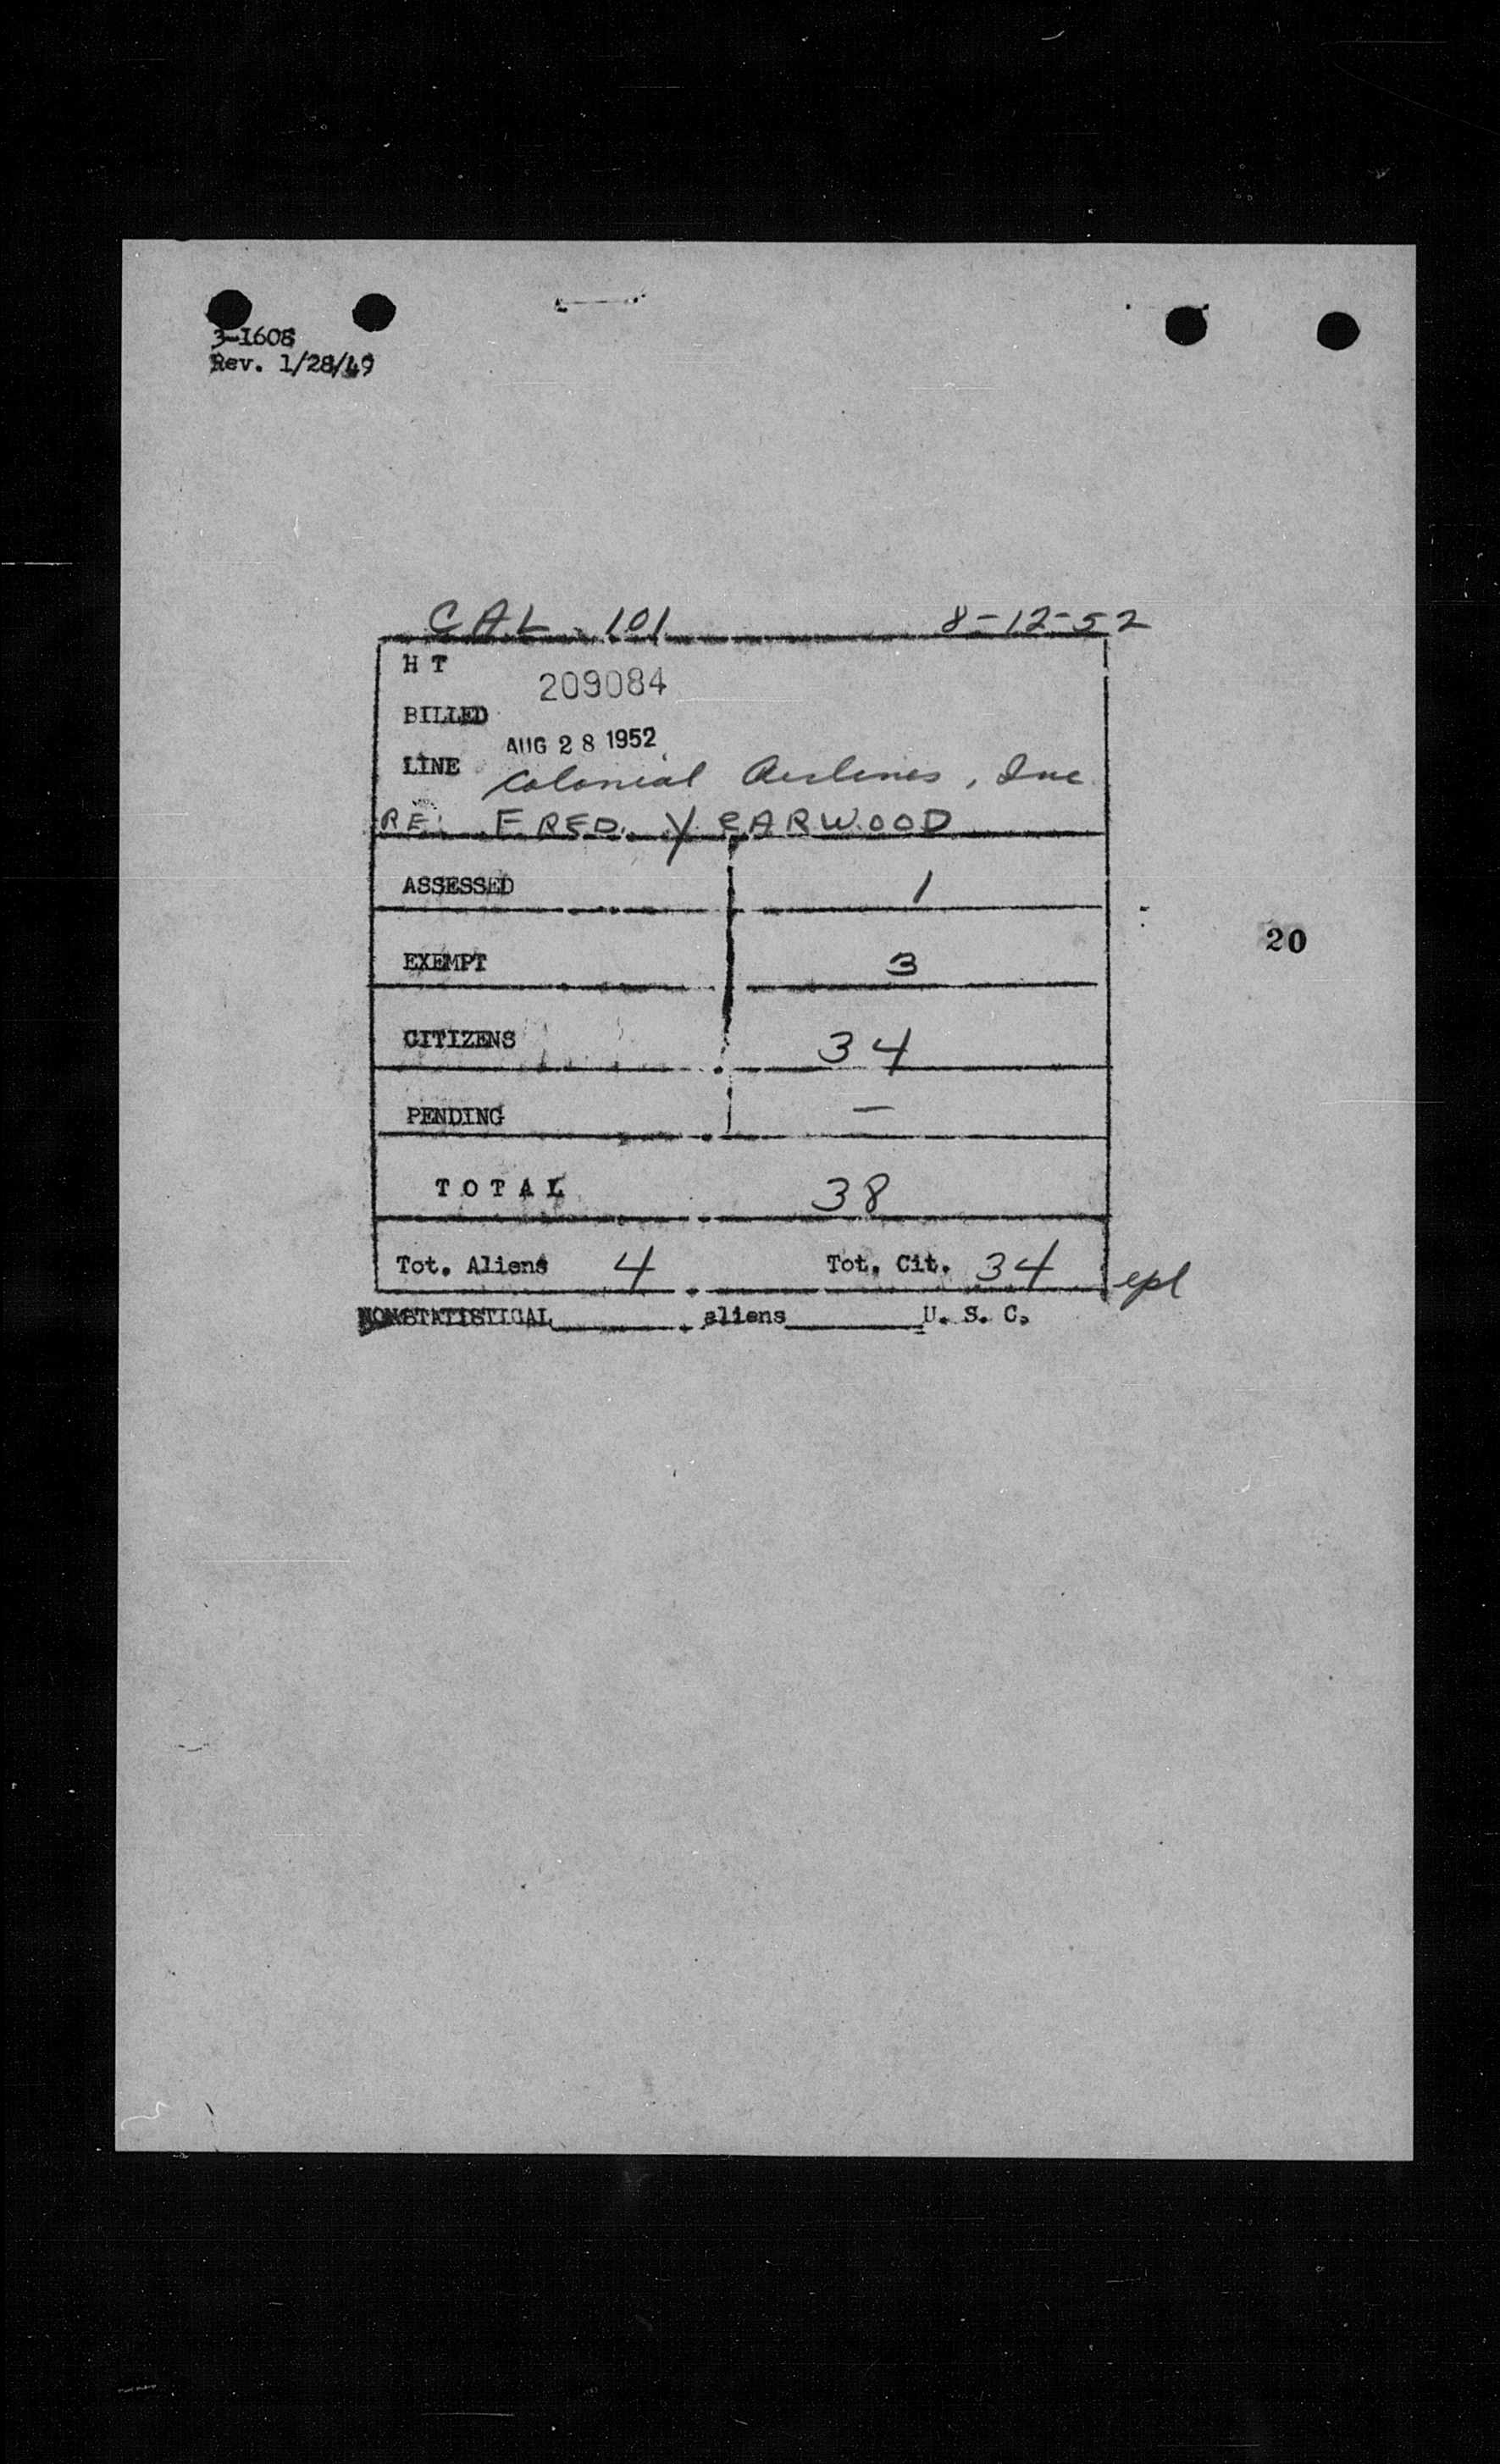 3-1608
Rev. 1/28/49
CAL 101 8-12-52
H T 209084
BILLED
AUG 28 1952
LINE Colonial Airlines, Inc
RE: FRED. YEARWOOD
ASSESSED 1
20
EXEMPT 3
CITIZENS 34
PENDING —
TOTAL 38
Tot. Aliens 4 Tot. Cit. 34 epl
NONSTATISTICAL________aliens________U. S. C.